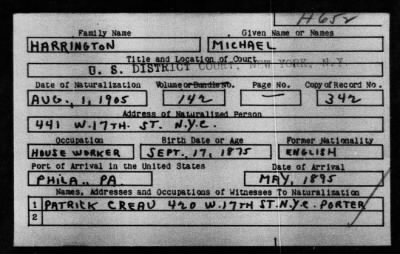 H652
Family Name Given Name or Names
HARRINGTON MICHAEL
Title and Location of Court
U. S. DISTRICT COURT, NEW YORK, N.Y.
Date of Naturalization Volume or Bundle No. Page No. Copy of Record No.
AUG., 1, 1905 142 — 342
Address of Naturalized Person
441 W. 17TH. ST. N.Y.C.
Occupation Birth Date or Age Former Nationality
HOUSE WORKER SEPT., 17, 1875 ENGLISH
Port of Arrival in the United States Date of Arrival
PHILA., PA MAY, 1895
Names, Addresses and Occupations of Witnesses To Naturalization
1 PATRICK CREAU 420 W. 17TH ST. N.Y.C. PORTER
2